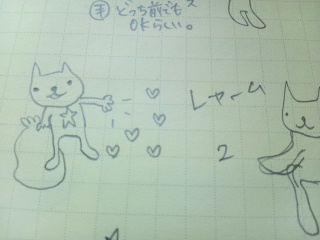 手 どっち前でも
OKらしい。
レャーム
2